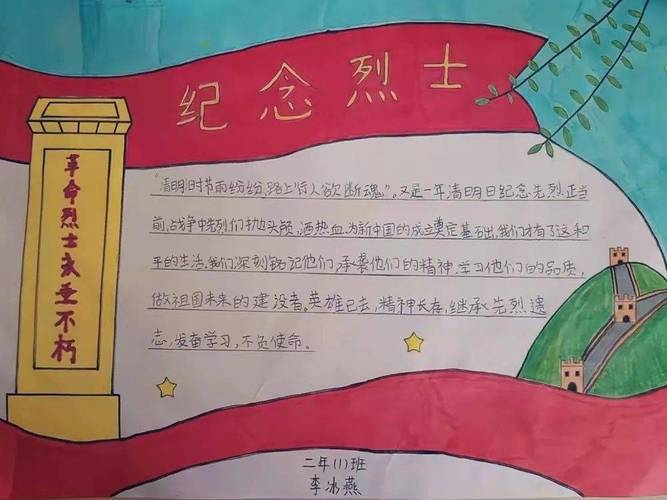 纪念烈士
革命烈士永垂不朽
"清明时节雨纷纷,路上行人欲断魂"。又是一年清明日纪念先烈正当
前,战争中先烈们抛头颅,洒热血,为新中国的成立奠定基础,我们才有了这和
平的生活。我们深刻铭记他们,承袭他们的精神,学习他们的品质,
做祖国未来的建设者。英雄已去,精神长存,继承先烈遗
志,发奋学习,不负使命。
二年(1)班
李冰燕